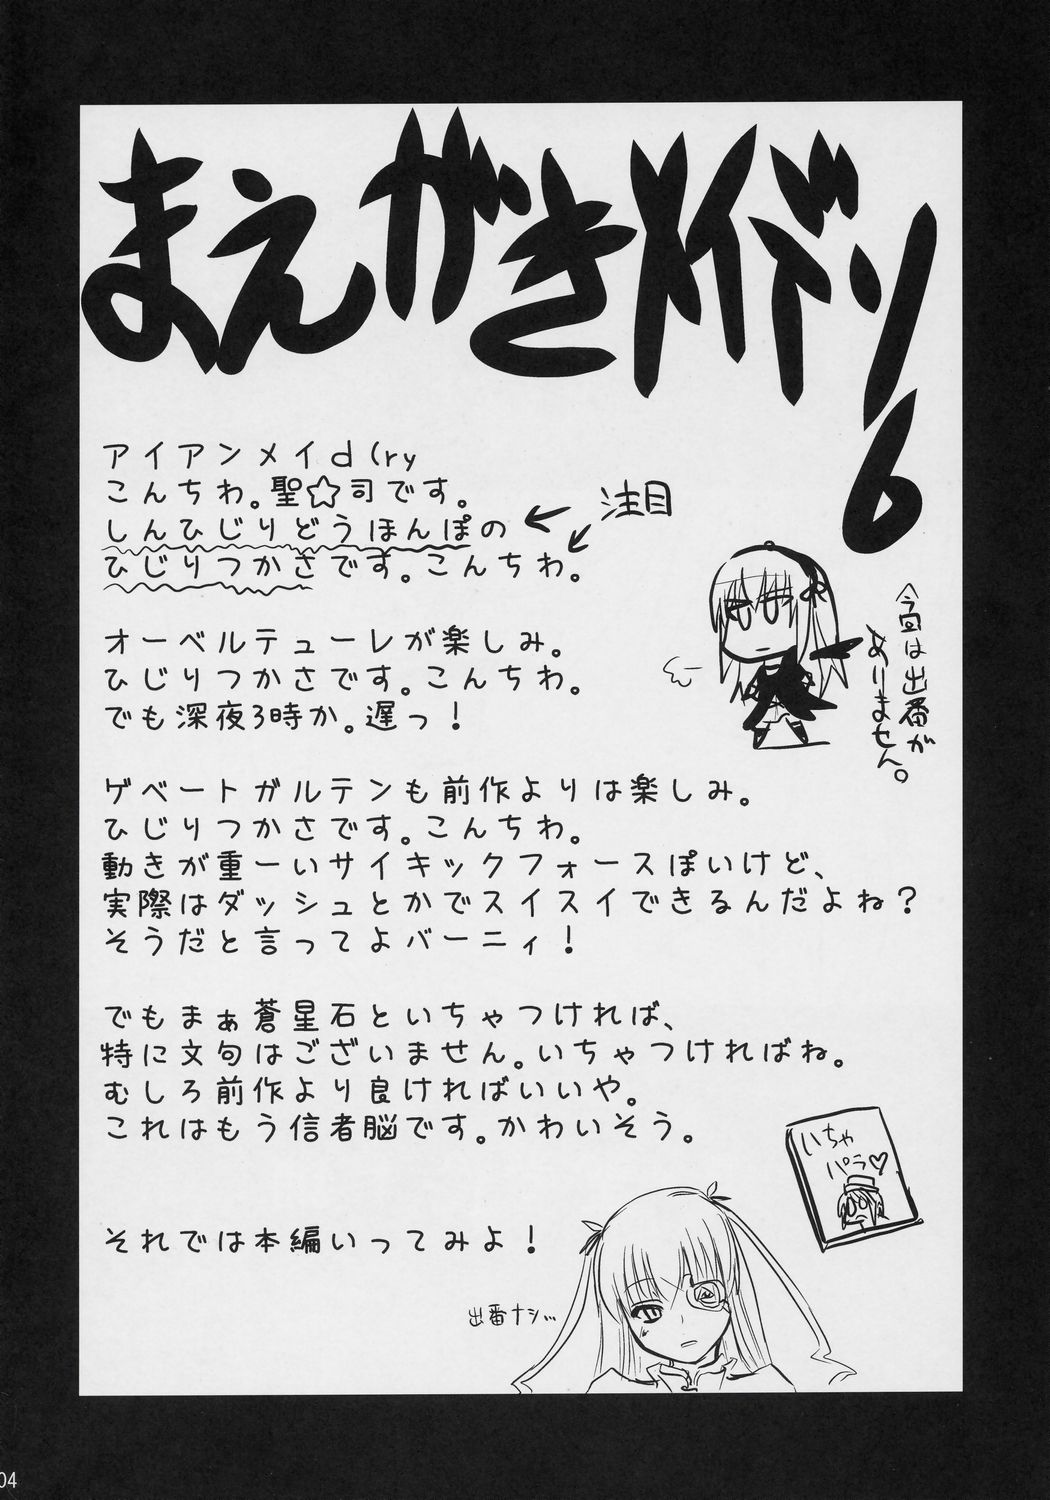 まえがきメイドソ6
アイアンメイd(ry
こんちわ。聖☆司です。
しんひじりどうほんぽの
ひじりつかさです。こんちわ。
注目
オーベルテューレが楽しみ。
ひじりつかさです。こんちわ。
でも深夜3時か。遅っ！
今回は出番が
ありません。
ゲベートガルテンも前作よりは楽しみ。
ひじりつかさです。こんちわ。
動きが重ーいサイキックフォースぽいけど、
実際はダッシュとかでスイスイできるんだよね？
そうだと言ってよバーニィ！
でもまぁ蒼星石といちゃつければ、
特に文句はございません。いちゃつければね。
むしろ前作より良ければいいや。
これはもう信者脳です。かわいそう。
いちゃ
パラ♡
それでは本編いってみよ！
出番ナシ…
04